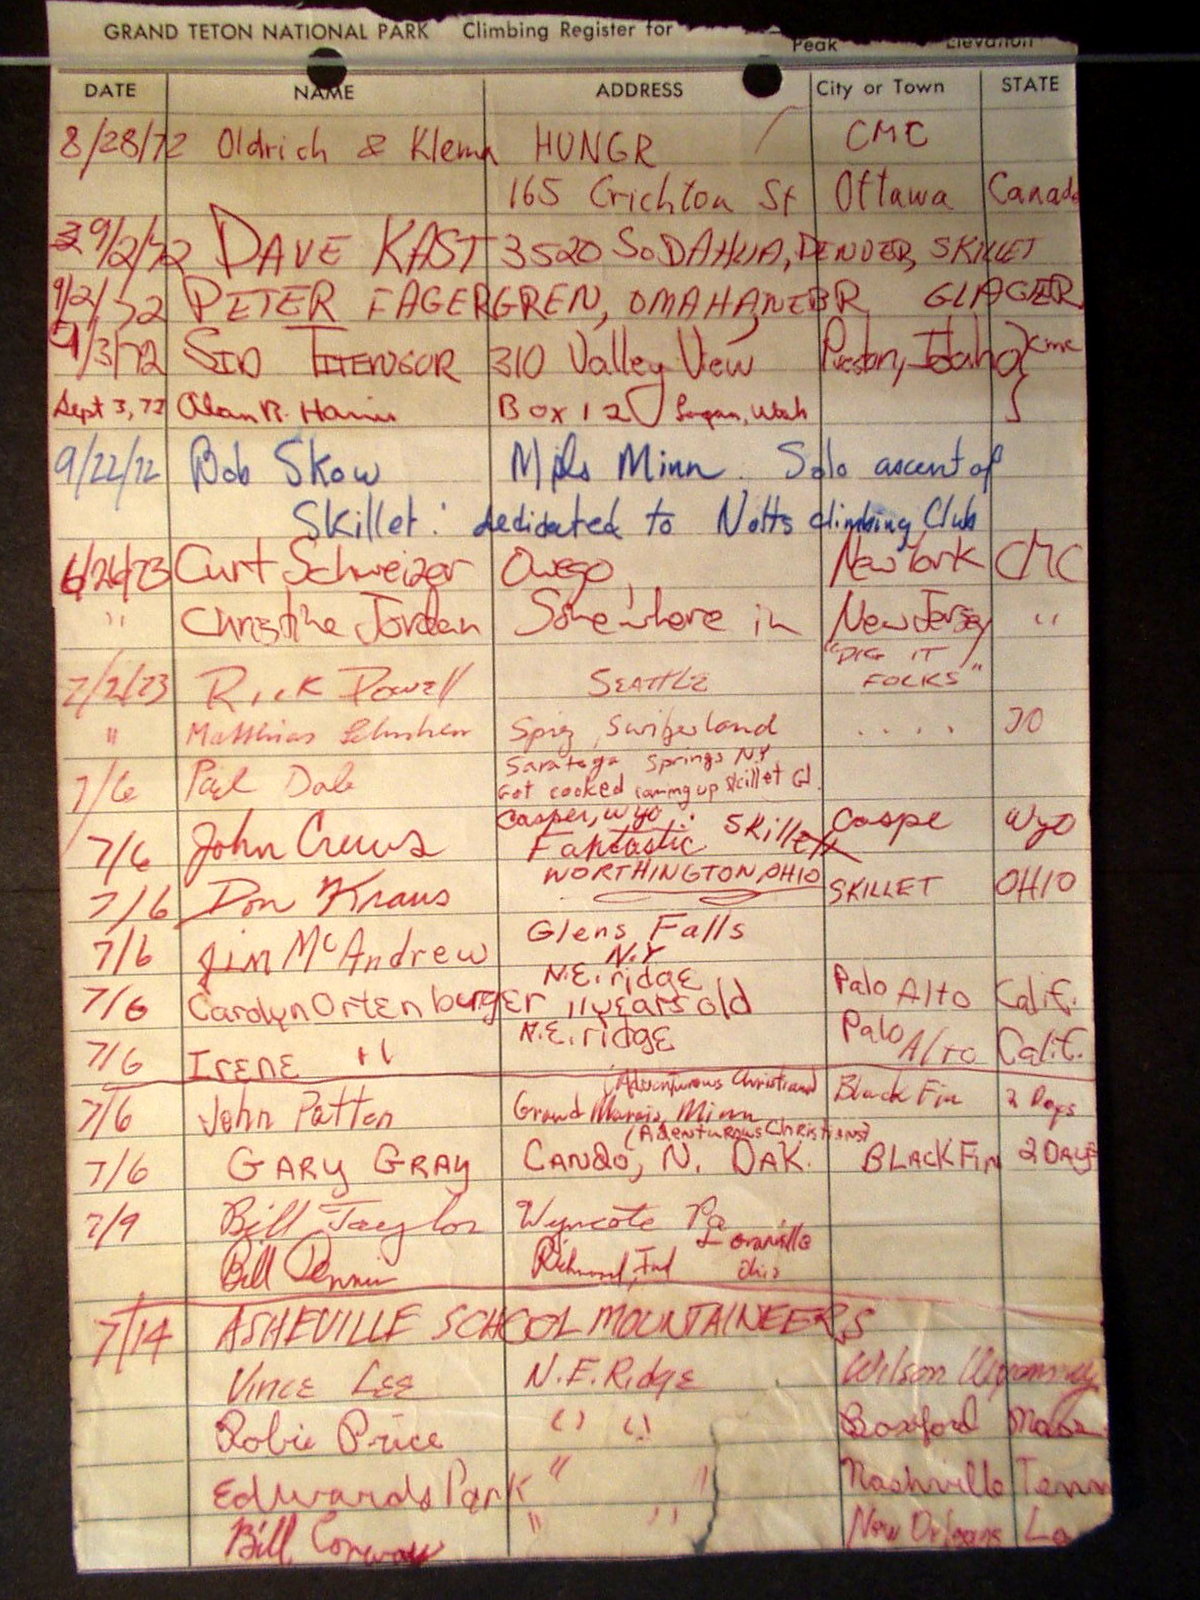 GRAND TETON NATIONAL PARK Climbing Register for
Peak Elevation
DATE NAME ADDRESS City or Town STATE
8/28/72 Oldrich & Klema HUNGR CMC
165 Crichton St Ottawa Canada
9/2/72 DAVE KAST 3520 So DAHLIA, DENVER, SKILLET
9/2/72 PETER FAGERGREN, OMAHA, NEBR GLACIER
9/3/72 SID 310 Valley View Preston, Idaho CMC
Sept 3, 72 Alan R. Harris Box 12 Logan, Utah
9/22/72 Bob Skow Mpls Minn. Solo ascent of
Skillet: dedidated to Notts climbing Club
6/26/73 Curt Schweizer Owego, New York CMC
" Christine Jordan Somewhere in New Jersey "
"DIG IT
7/2/73 Rick Powell SEATTLE FOLKS"
" Matthias Spiez, Switzerland . . . .
Saratoga Springs NY
7/6 Paul Dale Got cooked comming up skillet Gl.
Casper, Wyo.
7/6 John Crews Fantastic Skillet Caspe Wyo
WORTHINGTON, OHIO
7/6 Don Kraus SKILLET OHIO
Glens Falls
7/6 Jim McAndrew N.Y
N.E. ridge
7/6 Carolyn Ortenburger 11 years old Palo Alto Calif.
N.E. ridge
7/6 IRENE " Palo Alto Calif.
(Adventurous Christians)
7/6 John Patten Grand Marais, Minn Black Fin 2 Days
(AdenturousCHRISTIANS)
7/6 GARY GRAY CANDO, N. DAK. BLACK FIN 2 DAYS
7/9 Bill Taylor Wyncote Pa
Bill Richmond, Ind Ohio
7/14 ASHEVILLE SCHOOL MOUNTAINEERS
VINCE LEE N.E. RIDGE Wilson Wyoming
Robie Price " " Boxford Mass
Edwards Park " " Nashville Tenn
Bill Conway " " New Orleans La